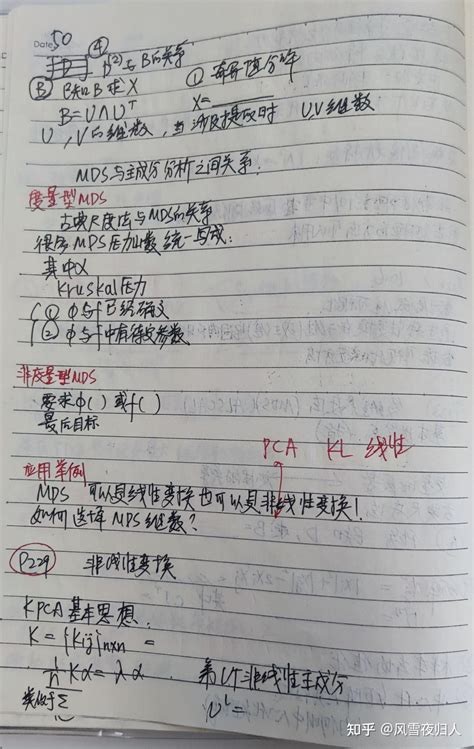 Date 50
④
D⁽²⁾与B的关系
③ B和B求X ① 奇异值分解
B=U∧Uᵀ X=
U,V的维数,当涉及提取时 UV维数
MDS与主成分分析之间关系:
度量型MDS
古典尺度法与MDS的关系
很多MDS压力函数统一写成:
其中α
Kruskal压力
① Φ与f已经确义
② Φ与f中有待定参数
非度量型MDS
要求Φ( )或f( )
最后目标
PCA KL 线性
应用举例
MDS 可以是线性变换也可以是非线性变换!
如何选择MDS维数?
P229 非线性变换
KPCA基本思想.
K={Kij}n×n =
1/n Kα=λα 第L个非线性主成分
类似于Σ
知乎 @风雪夜归人